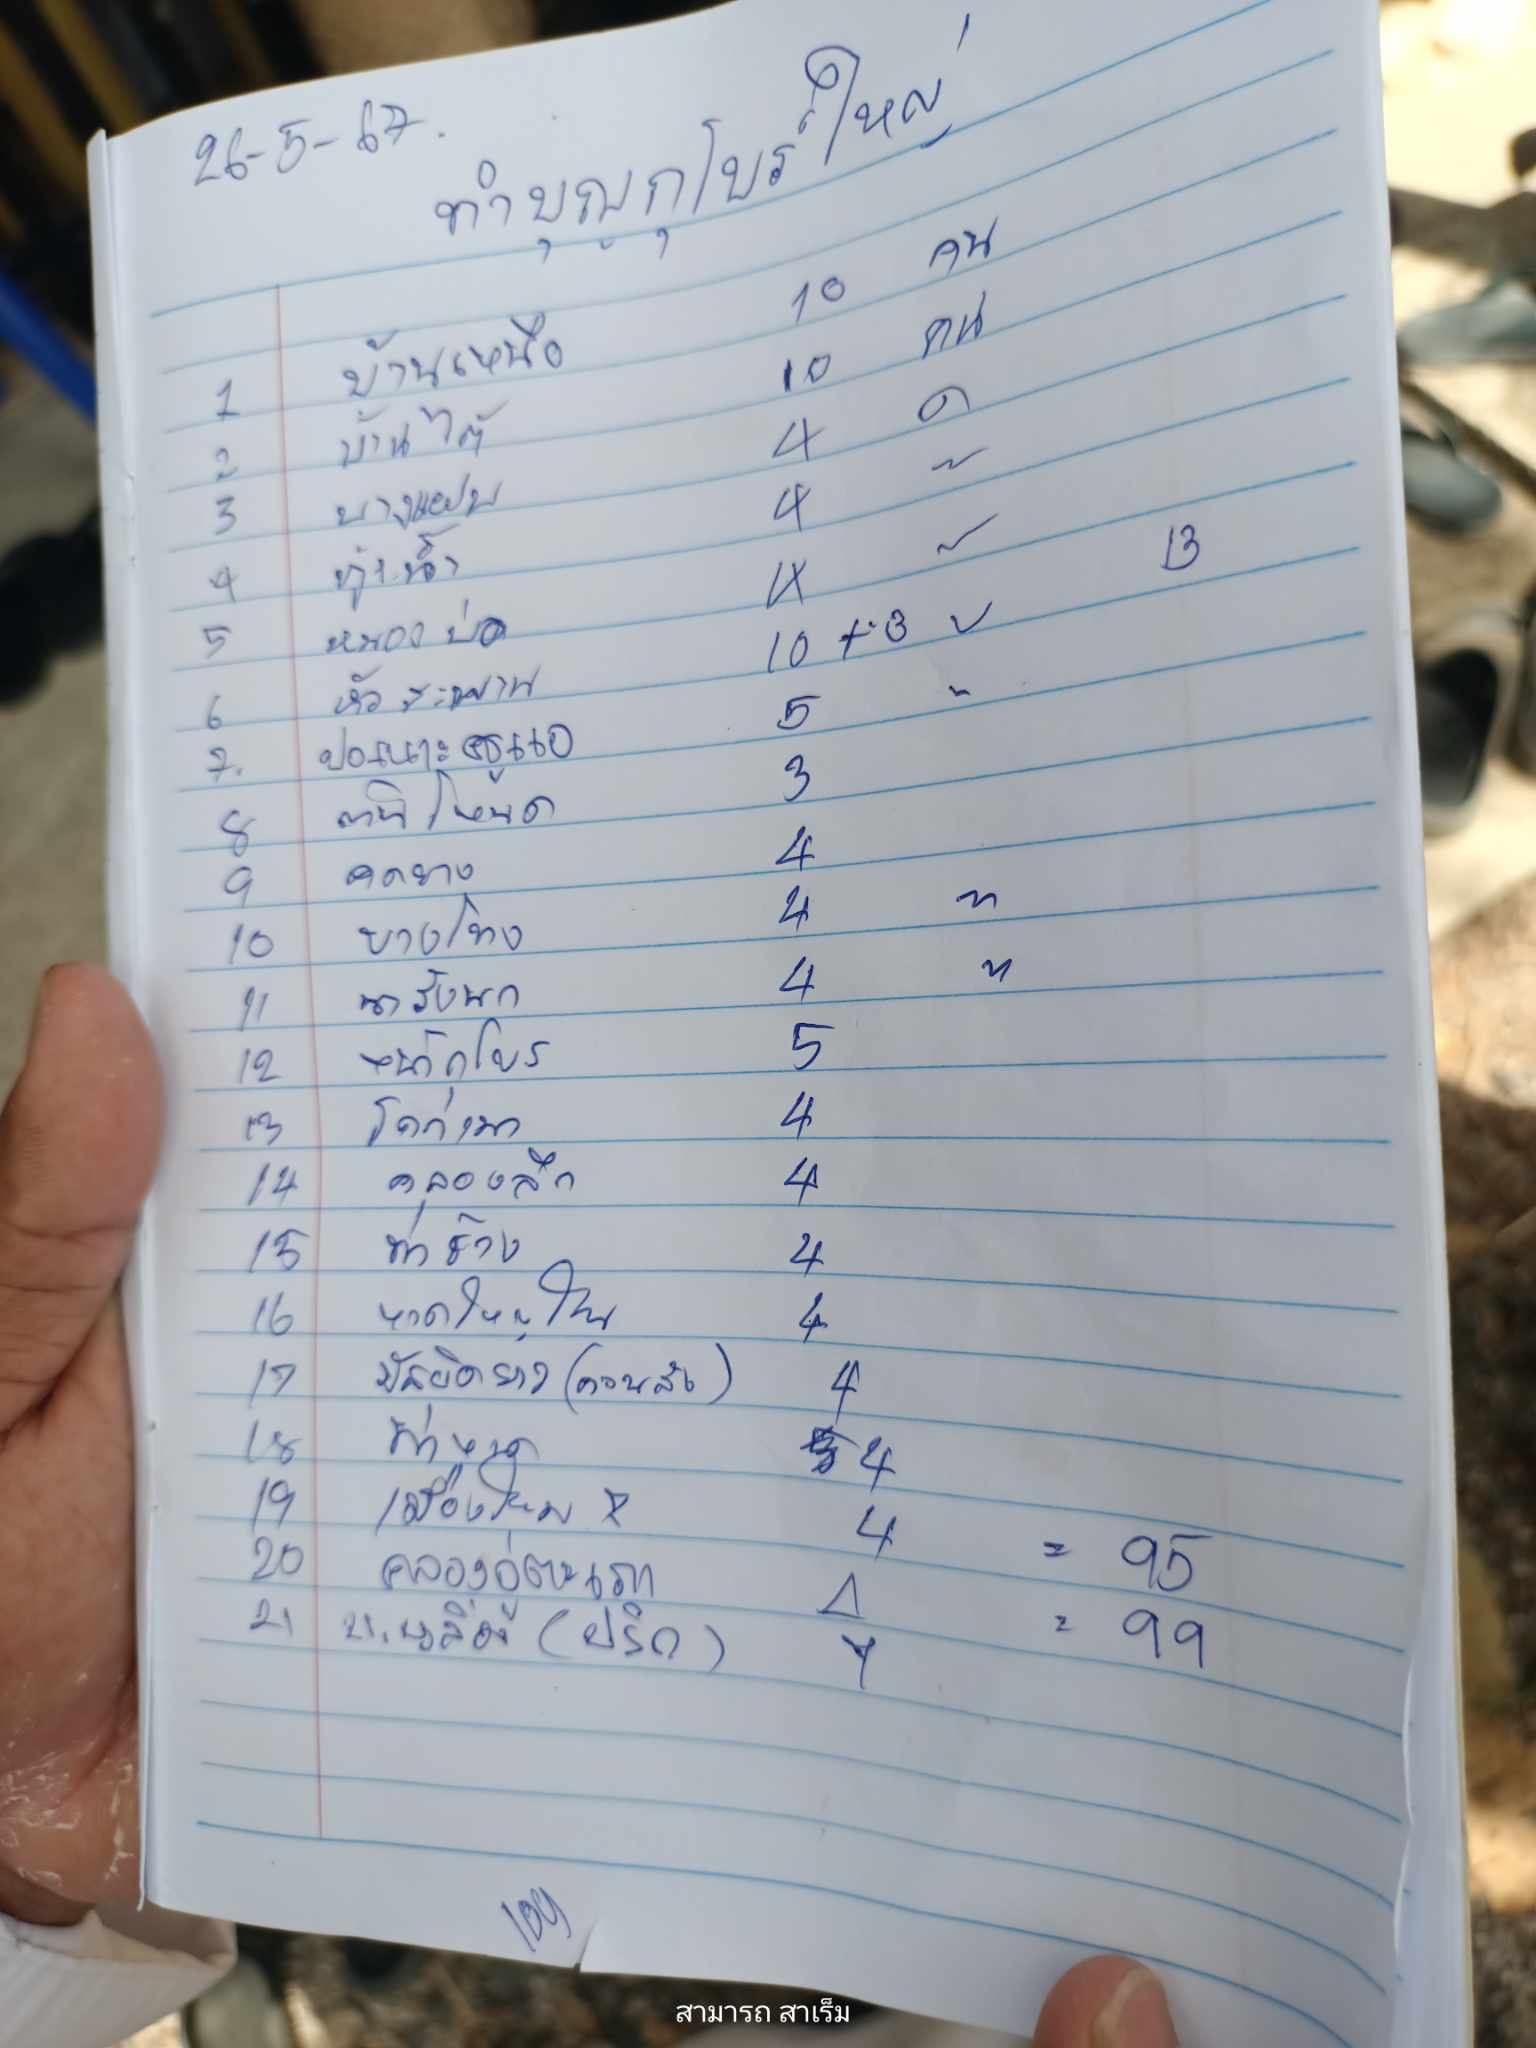 26-5-67.
ทำบุญกุโบร์ใหญ่
1 บ้านเหนือ 10 คน
2 บ้านใต้ 10 คน
3 บางแยบ 4 ค
4 4 ~
5 หนองบ่อ 4 ~
6 หัวสะพาน 10 + 3 13
7. ปอเนาะ 5
8 โหนด 3
9 คดยาง 4
10 บางโทง 4
11 นารังนก 4
12 หน้ากุโบร์ 5
13 4
14 คลองลึก 4
15 ท่าช้าง 4
16 หาดใหญ่ใน 4
17 (ควนลัง) 4
18 ท่าหาด 4
19 4 = 95
20 คลองอู่ตะเภา
21 (ปริก) 4 = 99
104
สามารถ สาเร็ม